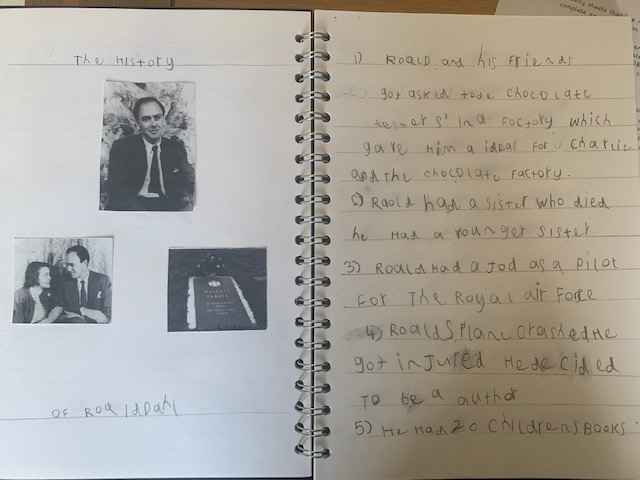 The History
OF ROalD Dahl
1) ROalD and his Friends
got asked to be CHOCOLATE
testers' In a FOCTORY which
gave Him a ideal For a Charlie
and The CHOCOLATE FACTORY.
2) Raold had a sister who died
he Had a Younger sister
3) ROalD Had a Jod as a Pilot
For The Royal air Force
4) ROalDs Plane Crashed He
got injured He decided
TO be a author
5) He Had 20 CHildrens BOOKS.